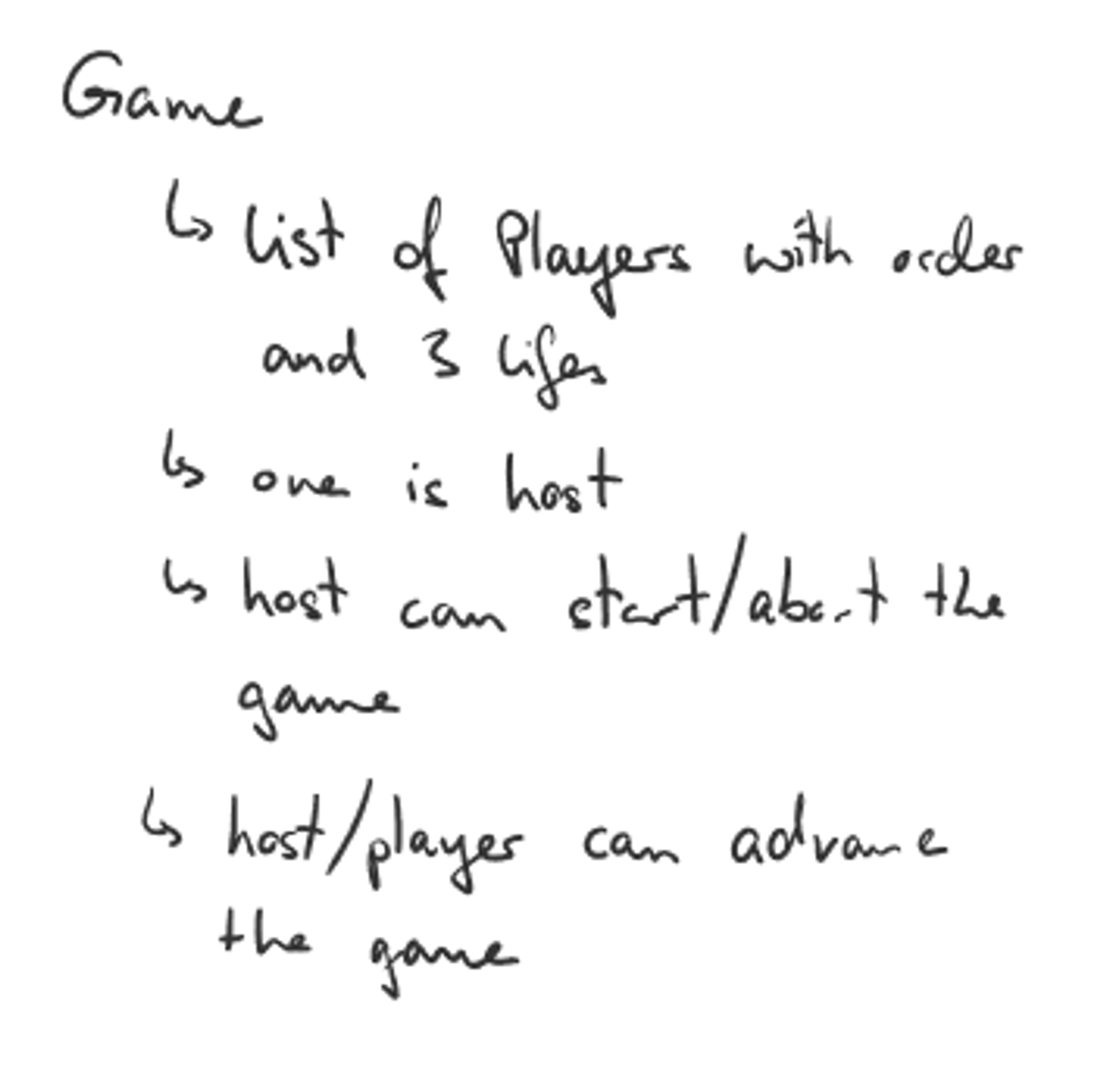 Game
↳ list of Players with order
and 3 lifes
↳ one is host
↳ host can start/abort the
game
↳ host/player can advance
the game